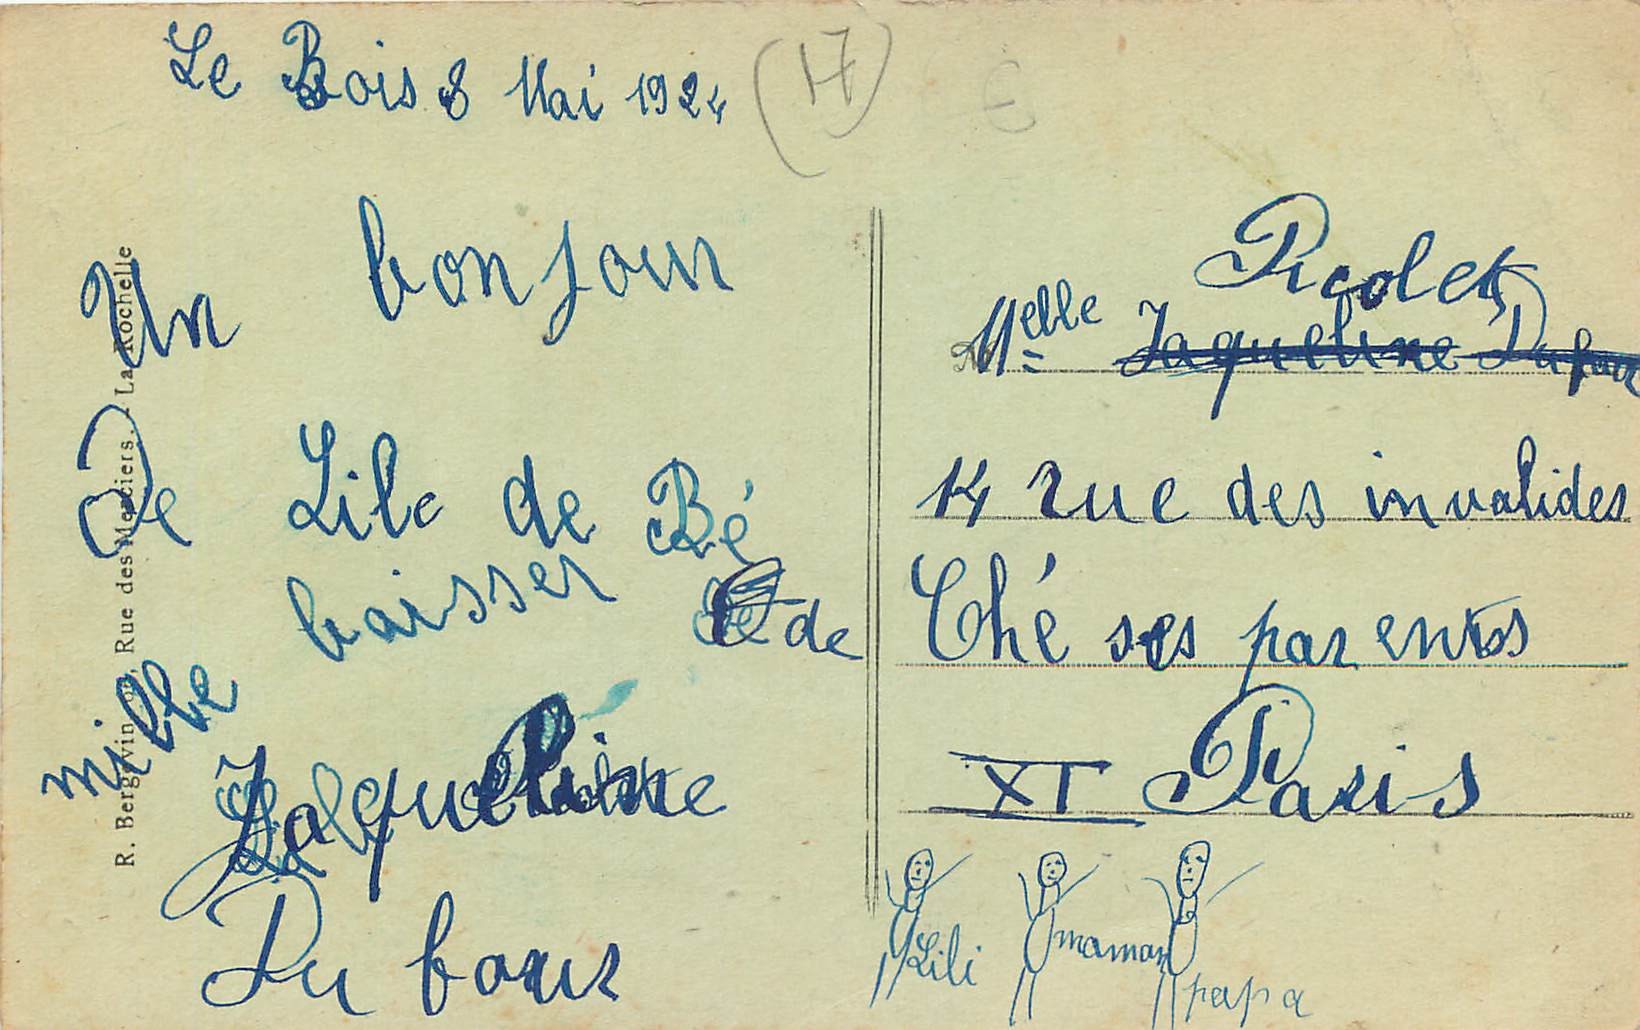 Le Bois 8 Mai 1924
(17)
Un bonjour
De Lile de Ré
mille baisser de
Jaqueline
Du four
Picolet
Melle Jaqueline Dufour
14 rue des invalides
Ché ses parents
XI Paris
Lili maman papa
R. Bergevin Rue des Merciers. - La Rochelle